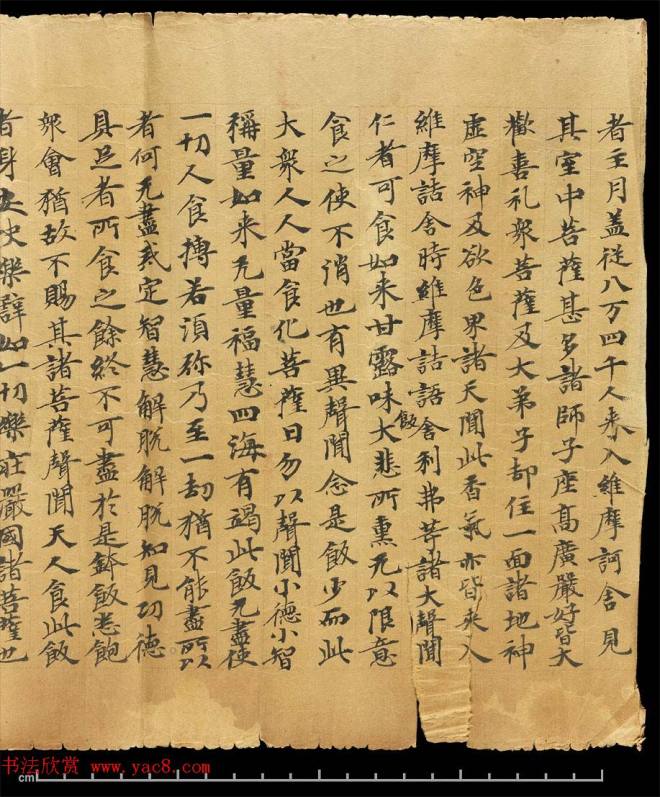 者主月盖從八万四千人来入維摩訶舍見
其室中菩薩甚多諸師子座高廣嚴好皆大
歡喜礼眾菩薩及大弟子却住一面諸地神
虛空神及欲色界諸天聞此香氣亦皆来入
維摩詰舍時維摩詰語舍利弗等諸大聲聞
仁者可食如来甘露味飯大悲所熏无以限意
食之使不消也有異聲聞念是飯少而此
大眾人人當食化菩薩曰勿以聲聞小德小智
稱量如来无量福慧四海有竭此飯无盡使
一切人食摶若須弥乃至一劫猶不能盡所以
者何无盡戒定智慧解脫解脫知見功德
具足者所食之餘終不可盡於是鉢飯悉飽
眾會猶故不賜其諸菩薩聲聞天人食此飯
者身安快樂辟如一切樂莊嚴國諸菩薩也
书法欣赏 www.yac8.com
cm